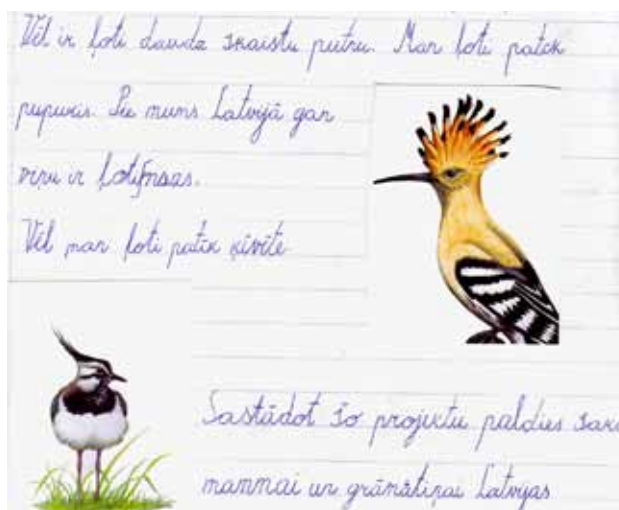 Vēl ir ļoti daudz skaistu putnu. Man ļoti patīk
pupuķis. Pie mums Latvijā gan
viņu ir ļoti
Vēl man ļoti patīk ķīvīte
Sastādot šo projektu paldies saku
mammai un grāmatiņai Latvijas